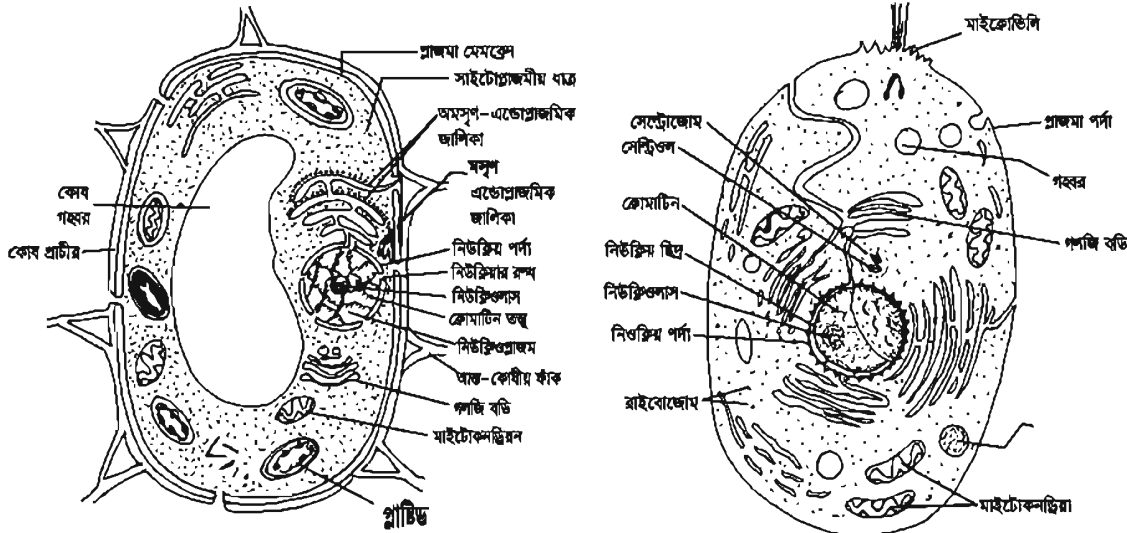 প্লাজমা মেমব্রেন
সাইটোপ্লাজমীয় ধাত্র
অমসৃণ-এন্ডোপ্লাজমিক
জালিকা
মসৃণ
এন্ডোপ্লাজমিক
জালিকা
কোষ
গহ্বর
কোষ প্রাচীর
নিউক্লিয় পর্দা
নিউক্লিয়ার রন্ধ্র
নিউক্লিওলাস
ক্রোমাটিন তন্তু
নিউক্লিওপ্লাজম
আন্ত-কোষীয় ফাঁক
গলজি বডি
মাইটোকনড্রিয়ন
প্লাষ্টিড
মাইক্রোভিলি
সেন্ট্রোজোম
সেন্ট্রিওল
প্লাজমা পর্দা
গহ্বর
ক্রোমাটিন
গলজি বডি
নিউক্লিয় ছিদ্র
নিউক্লিওলাস
নিওক্লিয় পর্দা
রাইবোজোম
মাইটোকনড্রিয়া